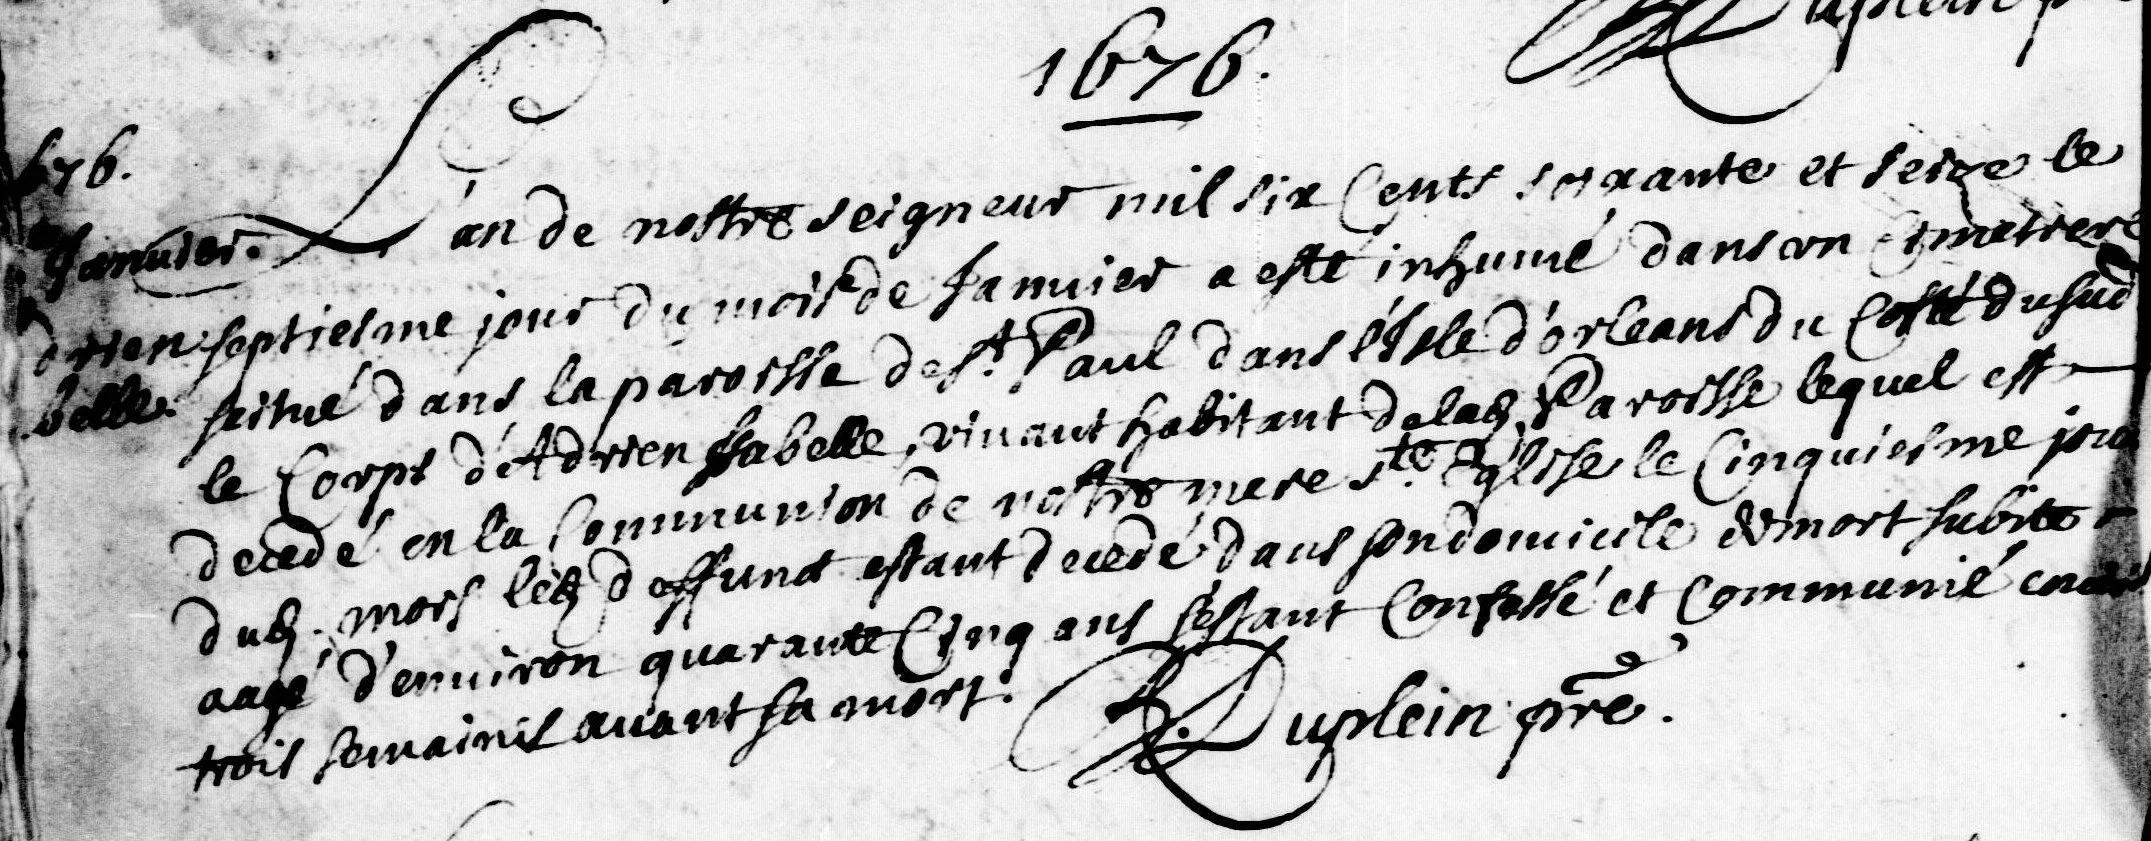 1676.
676.
Januier.
L'an de nostre seigneur mil six Cents soixante et seize le
drien septiesme jour du mois de Januier a esté inhumé dans un Cimetiere
belle. scitué dans la paroisse de st. Paul dans l'Isle d'orleans du Costé du sud
le Corps d'Adrien Isabelle, viuant habitant de lad. Paroisse lequel est
decedé en la Communion de nostre mere ste. Eglise le Cinquiesme jour
dud. mois led. deffunct estant decedé dans son domicile de mort subite
aagé d'enuiron quarante Cinq ans s'estant Confessé et Communié enuiron
trois semaines auant sa mort.
Duplein pre.